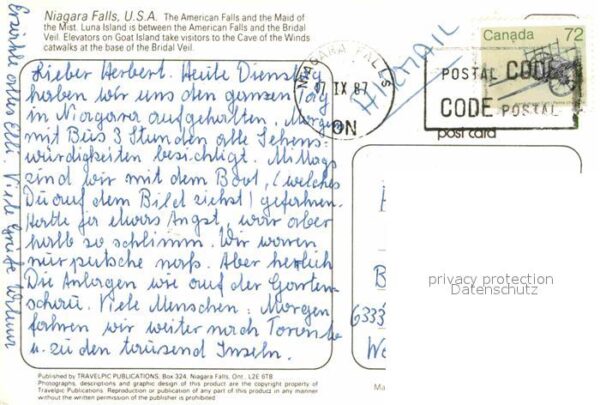 Niagara Falls, U.S.A. The American Falls and the Maid of
the Mist. Luna Island is between the American Falls and the Bridal
Veil. Elevators on Goat Island take visitors to the Cave of the Winds
catwalks at the base of the Bridal Veil.
Canada 72
NIAGARA FALLS
17 IX 87
ON
AIRMAIL
POSTAL CODE
CODE POSTAL
post card
Lieber Herbert. Heute Dienstag
haben wir uns den ganzen Tag
in Niagara aufgehalten. Morgens
mit Bus 3 Stunden alle Sehens-
würdigkeiten besichtigt. Mittags
sind wir mit dem Boot, (welches
Du auf dem Bild siehst) gefahren.
Hatte ja etwas Angst, war aber
halb so schlimm. Wir waren
nur putsche nass. Aber herrlich
Die Anlagen wie auf der Garten-
schau. Viele Menschen. Morgen
fahren wir weiter nach Toronto
u. zu den tausend Inseln.
Erzähle alles Elli. Viele Grüße
B
6333
We
privacy protection
Datenschutz
Published by TRAVELPIC PUBLICATIONS, Box 324, Niagara Falls, Ont., L2E 6T8
Photographs, descriptions and graphic design of this product are the copyright property of
Travelpic Publications. Reproduction or publication of any part of this product in any manner
without the written permission of the publisher is prohibited
Ma